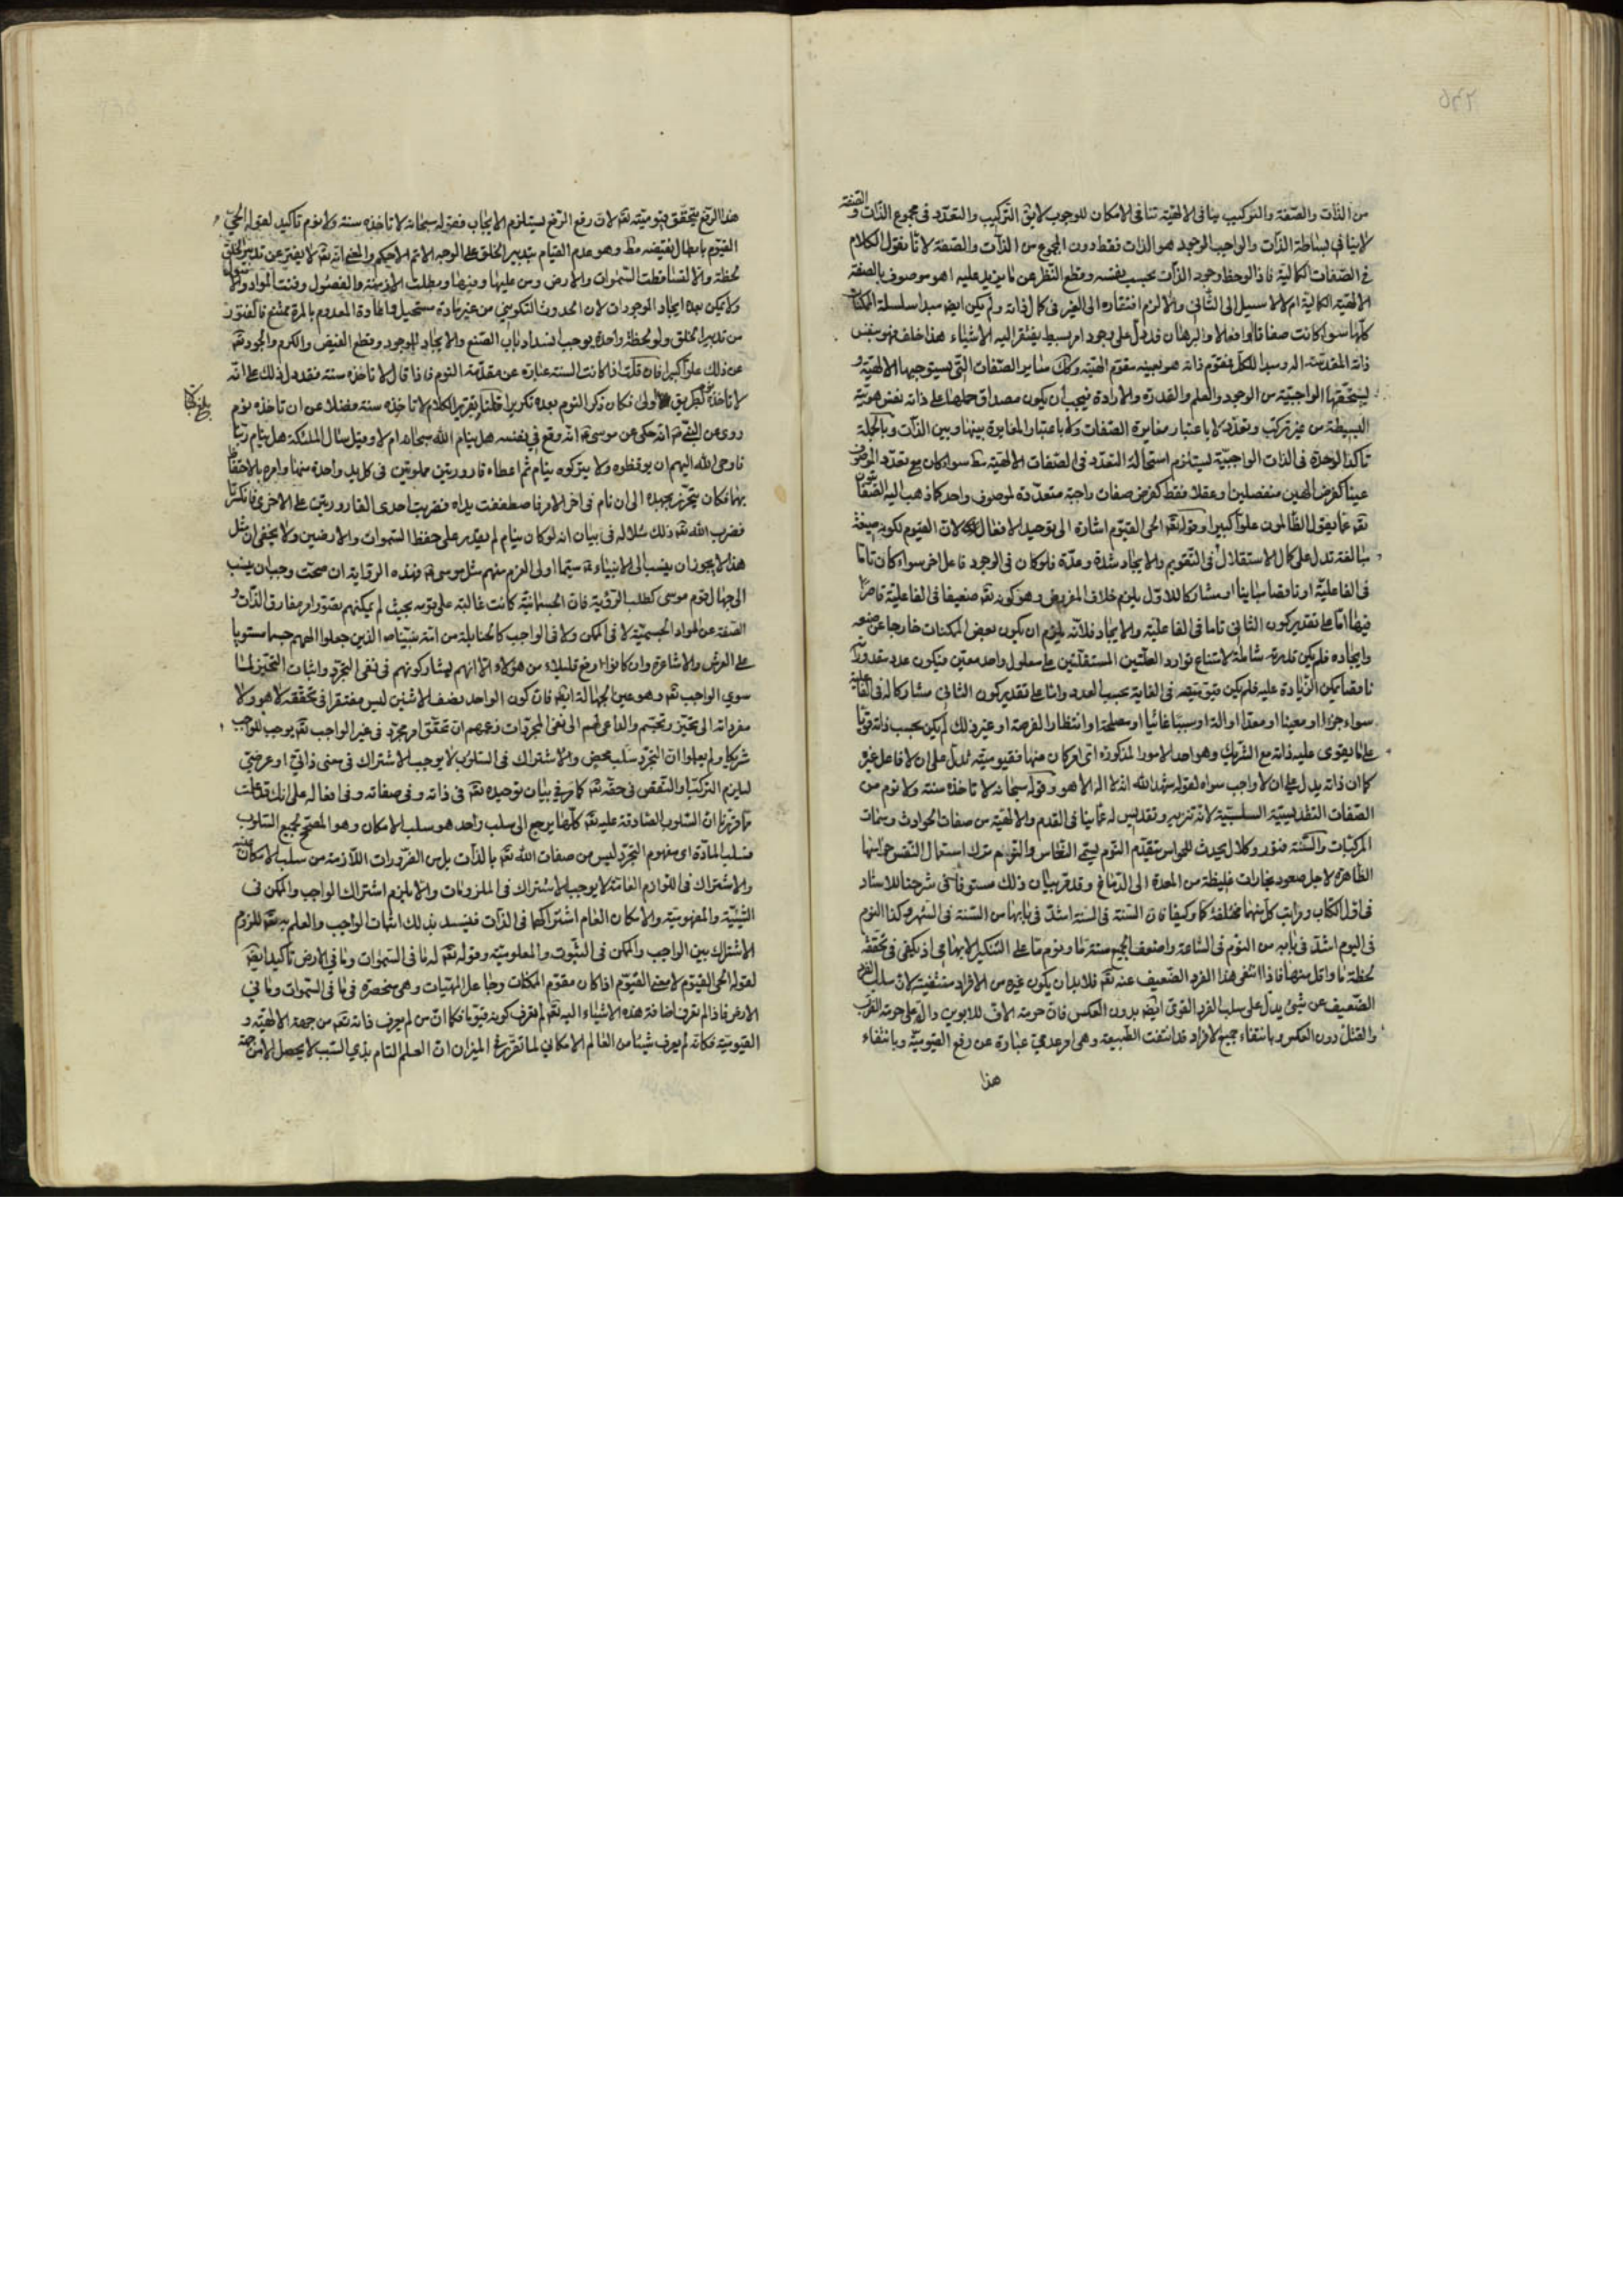 من الذات والصفة والتركيب ينافى الالهية تنافى الامكان للوجوب لا يق التركيب والتعدد فى مجموع الذات والصفة
لا ينافى بساطة الذات والواجب الوجود هو الذات فقط دون المجموع من الذات والصفة لانا نقول الكلام
فى الصفات الكمالية فاذا لوحظ وجود الذات بحسب نفسه وقطع النظر عن ما يزيد عليه اهو موصوف بالصفة
الالهية الكمالية ام لا لا سبيل الى الثانى والا لزم افتقاره الى الغير فى كمال ذاته ولم يكن ايضا مبدا سلسلة الممكنات
كلها سواء كانت صفاتا او افعالا والبرهان قد دل على وجود امر بسيط يفتقر اليه الاشياء هذا خلف فهو بنفس
ذاته المقدسة اله ومبدا للكل فمقوم ذاته هو بعينه مقوم الهيته وكك ساير الصفات التى يستوجبها الالهية و
يستحقها الواجبية من الوجود والعلم والقدرة والارادة فيجب ان يكون مصداق حملها على ذاته نفس هويته
البسيطة من غير تركب وتعدد لا باعتبار مغايرة الصفات ولا باعتبار المغايرة بينها وبين الذات وبالجملة
تاكد الوحدة فى الذات الواجبية يستلزم استحالة التعدد فى الصفات الالهية مط سواء كان مع تعدد الموصوف
عينا كفرض الهين منفصلين او عقلا فقط كفرض صفات واجبة متعددة لموصوف واحد كما ذهب اليه الصفاتيون
تعه عما يقول الظالمون علوا كبيرا وقوله تعه الحى القيوم اشارة الى توحيد الافعال لان القيوم لكونه صيغة
مبالغة تدل على كمال الاستقلال فى التقويم والايجاد شدة وعدة فلو كان فى الوجود فاعل اخر سواء كان تاما
فى الفاعلية او ناقصا مباينا او مشاركا للاول يلزم خلاف المفروض وهو كونه تعه ضعيفا فى الفاعلية قاصرا
فيها اما على تقدير كون الثانى تاما فى الفاعلية والايجاد فلانه يلزم ان يكون بعض الممكنات خارجا عن صنعه
وايجاده فلم يكن قدرته شاملة لامتناع توارد العلتين المستقلتين على معلول واحد معين فيكون عدد مقدوراته
ناقصا يمكن الزيادة عليه فلم يكن قيوميته فى الغاية بحسب العدد واما على تقدير كون الثانى مشاركا له فى الفاعلية
سواء جزءا او معينا او معدا او الة او سببا غائيا او مصلحة او انتظارا لفرصة او غير ذلك لم يكن بحسب ذاته قويا
على ما يقوى عليه ذاته مع الشريك وهو احد الامور المذكورة اى امر كان منها فقيوميته تدل على ان لا فاعل غيره
كما ان ذاته يدل على ان لا واجب سواه لقوله شهد الله انه لا اله الا هو وقوله سبحانه لا تاخذه سنة ولا نوم من
الصفات التقديسية السلبية لانه تنزيه وتقديس له عما ينافى القدم والالهية من صفات الحوادث وسمات
المركبات والسنة فتور وكلال يحدث للحواس يتقدم النوم يسمى النعاس والنوم ترك استعمال النفس حواسها
الظاهرة لاجل صعود بخارات غليظة من المعدة الى الدماغ وقد مر بيان ذلك مستوفا فى شرحنا للاسناد
فى اول الكتاب ومراتب كل منهما مختلفة كما وكيفا فان السنة فى السنة اشد فى بابها من السنة فى الشهر وكذا النوم
فى اليوم اشد فى بابه من النوم فى الساعة واضعف الجميع سنة ما ونوم ما على التنكير الابهامى اذ يكفى فى تحققه
لحظة ما واقل منها فاذا انتفى هذا الفرد الضعيف عنه تعه فلا بد ان يكون غيره من الافراد منتفية لان سلب الفرد
الضعيف عن شىء يدل على سلب الفرد القوى ايضا بدون العكس فان حرمة الاف للابوين دالة على حرمة الضرب
والقتل دون العكس وبانتفاء جميع الافراد قد انتفت الطبيعة وهى امر عدمى عبارة عن رفع القيومية وبانتفاء
هذا
هذا الرفع يتحقق قيوميته تعه لان رفع الرفع يستلزم الايجاب فقوله سبحانه لا تاخذه سنة ولا نوم تاكيد لقوله الحى
القيوم بابطال نقيضه مط وهو عدم القيام بتدبير الخلق على الوجه الاتم الاحكم والمعنى انه تعه لا يفتر عن تدبير الخلق
لحظة والا لفسدا فطت السموات والارض ومن عليها وفيها وبطلت الازمنة والفصول وفنت المواد والاصول
ولا يمكن بعده ايجاد الموجودات لان الحدوث التكوينى من غير مادة مستحيل واعادة المعدوم بالمرة ممتنع فالفتور
من تدبير الخلق ولو لحظة واحدة يوجب انسداد باب الصنع والايجاد للوجود وقطع الفيض والكرم والجود تعه
عن ذلك علوا كبيرا فان قلت اذا كانت السنة عبارة عن مقدمة النوم فاذا قال لا تاخذه سنة فقد دل ذلك على انه
لا تاخذه نوم بطريق اولى فكان ذكر النوم بعده تكريرا قلنا تقرير الكلام لا تاخذه سنة فضلا عن ان تاخذه نوم
بلغ قبالا
روى عن النبى ص انه حكى عن موسى ع انه وقع فى نفسه هل ينام الله سبحانه ام لا وقيل سال الملئكة هل ينام ربنا
فاوحى الله اليهم ان يوقظوه ولا يتركوه ينام ثم اعطاه قارورتين مملوتين فى كل يد واحدة منهما وامره بالاحتفاظ
بهما فكان يتحرز بجهده الى ان نام فى اخر الامر فاصطفقت يداه فضربت احدى القارورتين على الاخرى فانكسرتا
فضرب الله تعه ذلك مثلا له فى بيان انه لو كان ينام لم يقدر على حفظ السموات والارضين ولا يخفى ان مثل
هذا لا يجوز ان ينسب الى الانبياء ع سيما اولى العزم منهم مثل موسى ع فهذه الرواية ان صحت وجب ان ينسب
الى جهال قوم موسى كطلب الرؤية فان الجسمانية كانت غالبة على قومه بحيث لم يمكنهم تصور امر مفارق الذات و
الصفة عن المواد الجسمية لا فى الممكن ولا فى الواجب كالحنابلة من امة نبينا ص الذين جعلوا الههم جسما مستويا
على العرش والاشاعرة وان كانوا ارفع قليلا من هؤلاء الا انهم يشاركونهم فى نفى التجرد واثبات التحيز لما
سوى الواجب تعه وهو عين الجهالة ايضا فان كون الواحد نصف الاثنين ليس مفتقرا فى تحققه لا هو ولا
مفرداته الى تحيز وتجسم والداعى لهم الى نفى المجردات زعمهم ان تحقق امر مجرد فى غير الواجب تعه يوجب للواجب
شريكا ولم يعلموا ان التجرد سلب محض والاشتراك فى السلوب لا يوجب الاشتراك فى معنى ذاتى او عرضى
ليلزم التركب او النقص فى حقه تعه كما مر فى بيان توحيده تعه فى ذاته وفى صفاته وفى افعاله على انك قد علمت
مما قررنا ان السلوب الصادقة عليه تعه كلها يرجع الى سلب واحد هو سلب الامكان وهو المصحح لجميع السلوب
فسلب المادة اى مفهوم التجرد ليس من صفات الله تعه بالذات بل من الضرورات اللازمة من سلب الامكان عنه
والاشتراك فى اللوازم العامة لا يوجب الاشتراك فى الملزومات والا يلزم اشتراك الواجب والممكن فى
الشيئية والمفهومية والامكان العام اشتراكهما فى الذات فينسد بذلك اثبات الواجب والعلم به تعه للزوم
الاشتراك بين الواجب والممكن فى الثبوت والمعلومية وقوله تعه له ما فى السموات وما فى الارض تاكيد ايضا
لقوله الحى القيوم لا معنى القيوم اذا كان مقوم الممكنات وجاعل المهيات وهى منحصرة فى ما فى السموات وما فى
الارض فاذا لم نعرف اضافة هذه الاشياء اليه تعه لم نعرف كونه قيوما فكما ان من لم يعرف ذاته تعه من جهة الالهية و
القيومية فكانه لم يعرف شيئا من العالم الامكانى لما تقرر فى الميزان ان العلم التام بذى السبب لا يحصل الا من جهة